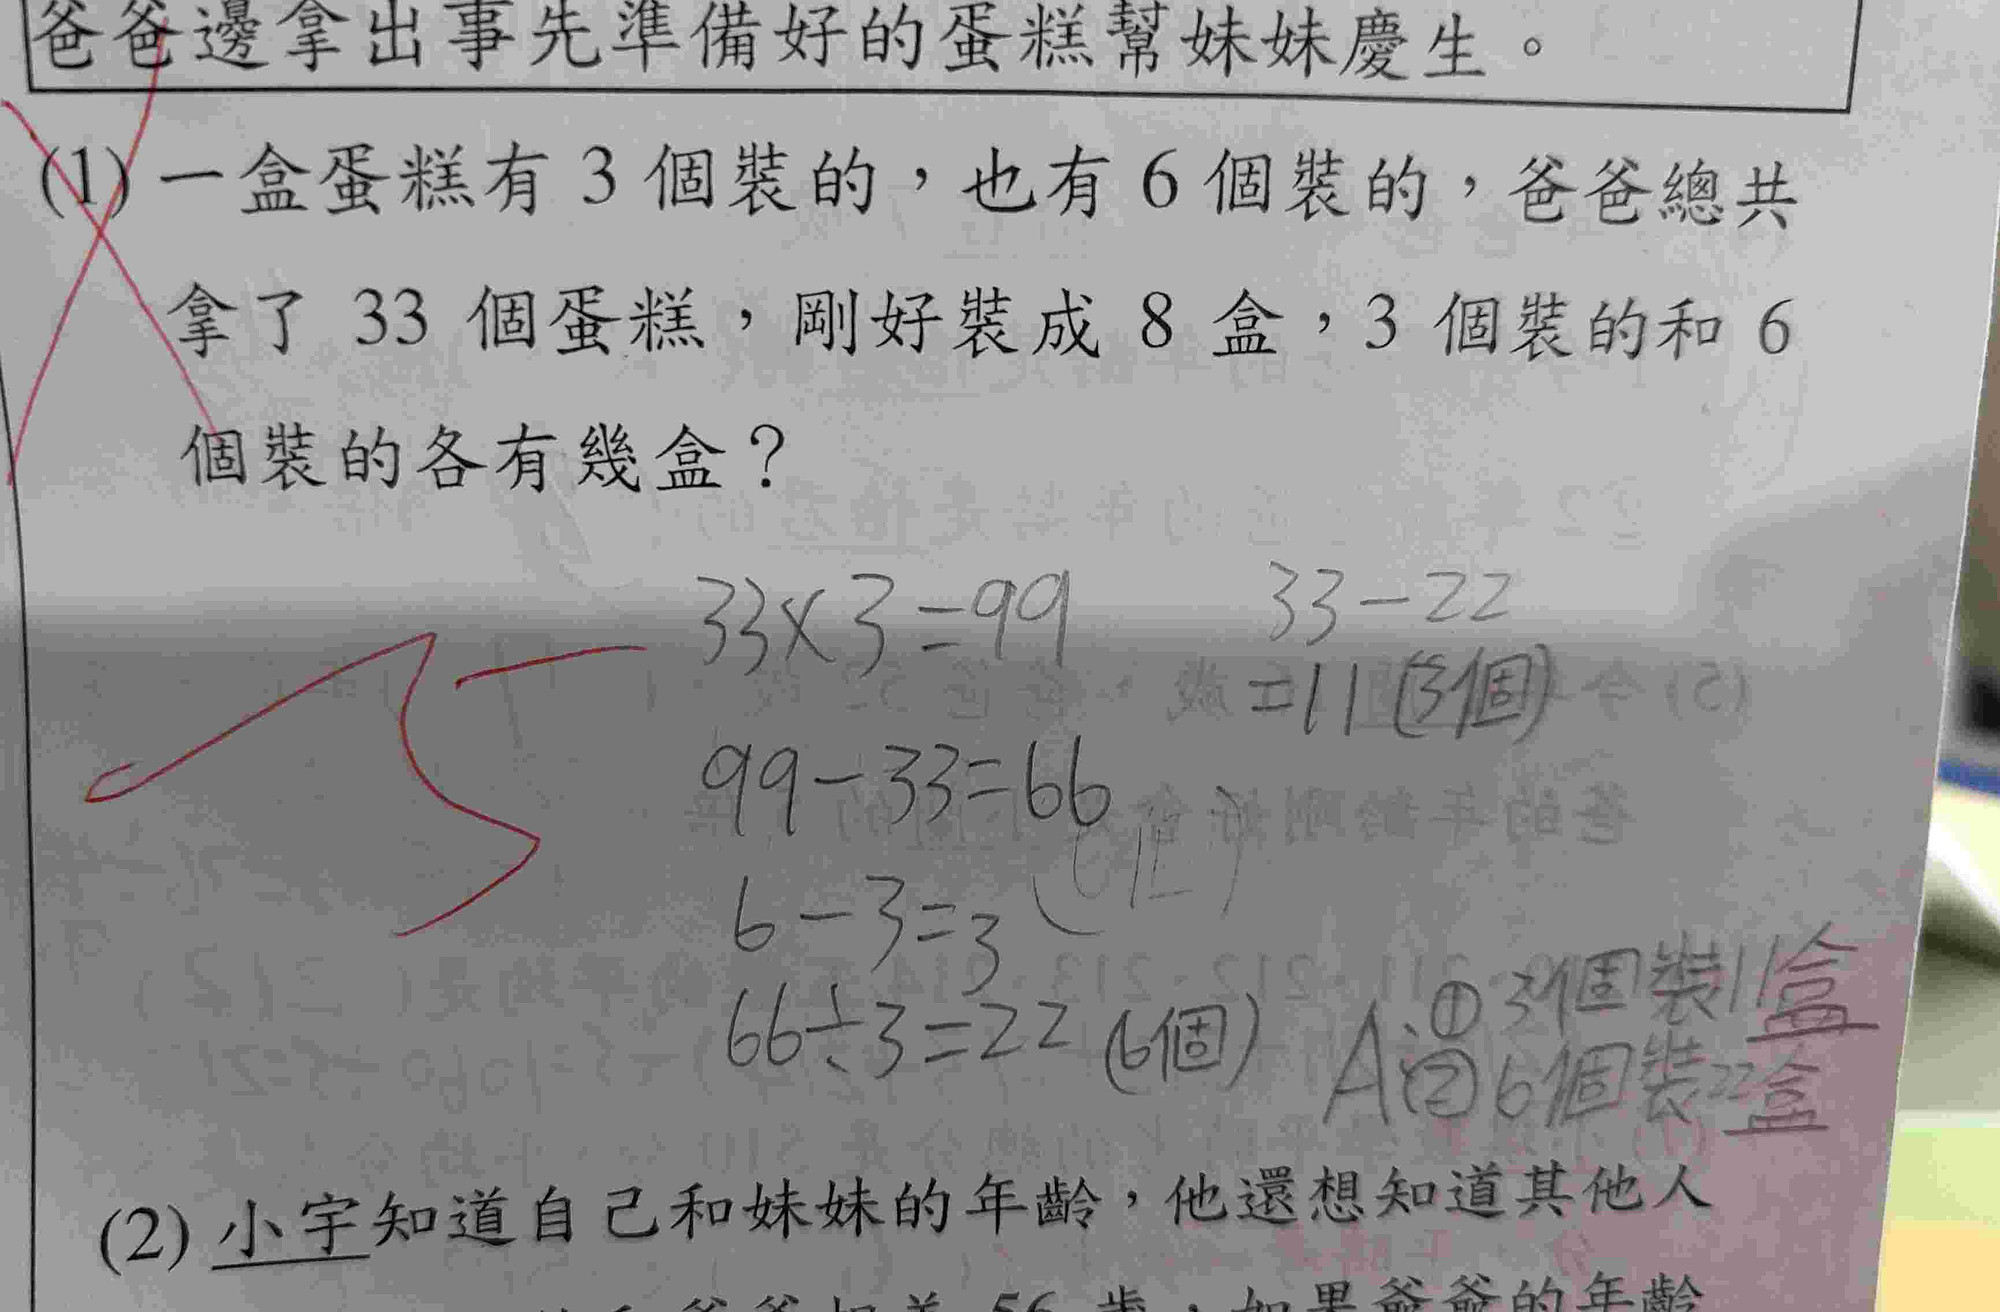 爸爸邊拿出事先準備好的蛋糕幫妹妹慶生。
(1) 一盒蛋糕有 3 個裝的，也有 6 個裝的，爸爸總共
拿了 33 個蛋糕，剛好裝成 8 盒，3 個裝的和 6
個裝的各有幾盒？
33×3=99
99-33=66
6-3=3
66÷3=22 (6個)
33-22
=11 (3個)
A:①3個裝11盒
②6個裝22盒
(2) 小宇知道自己和妹妹的年齡，他還想知道其他人
56 歲，如果爺爺的年齡